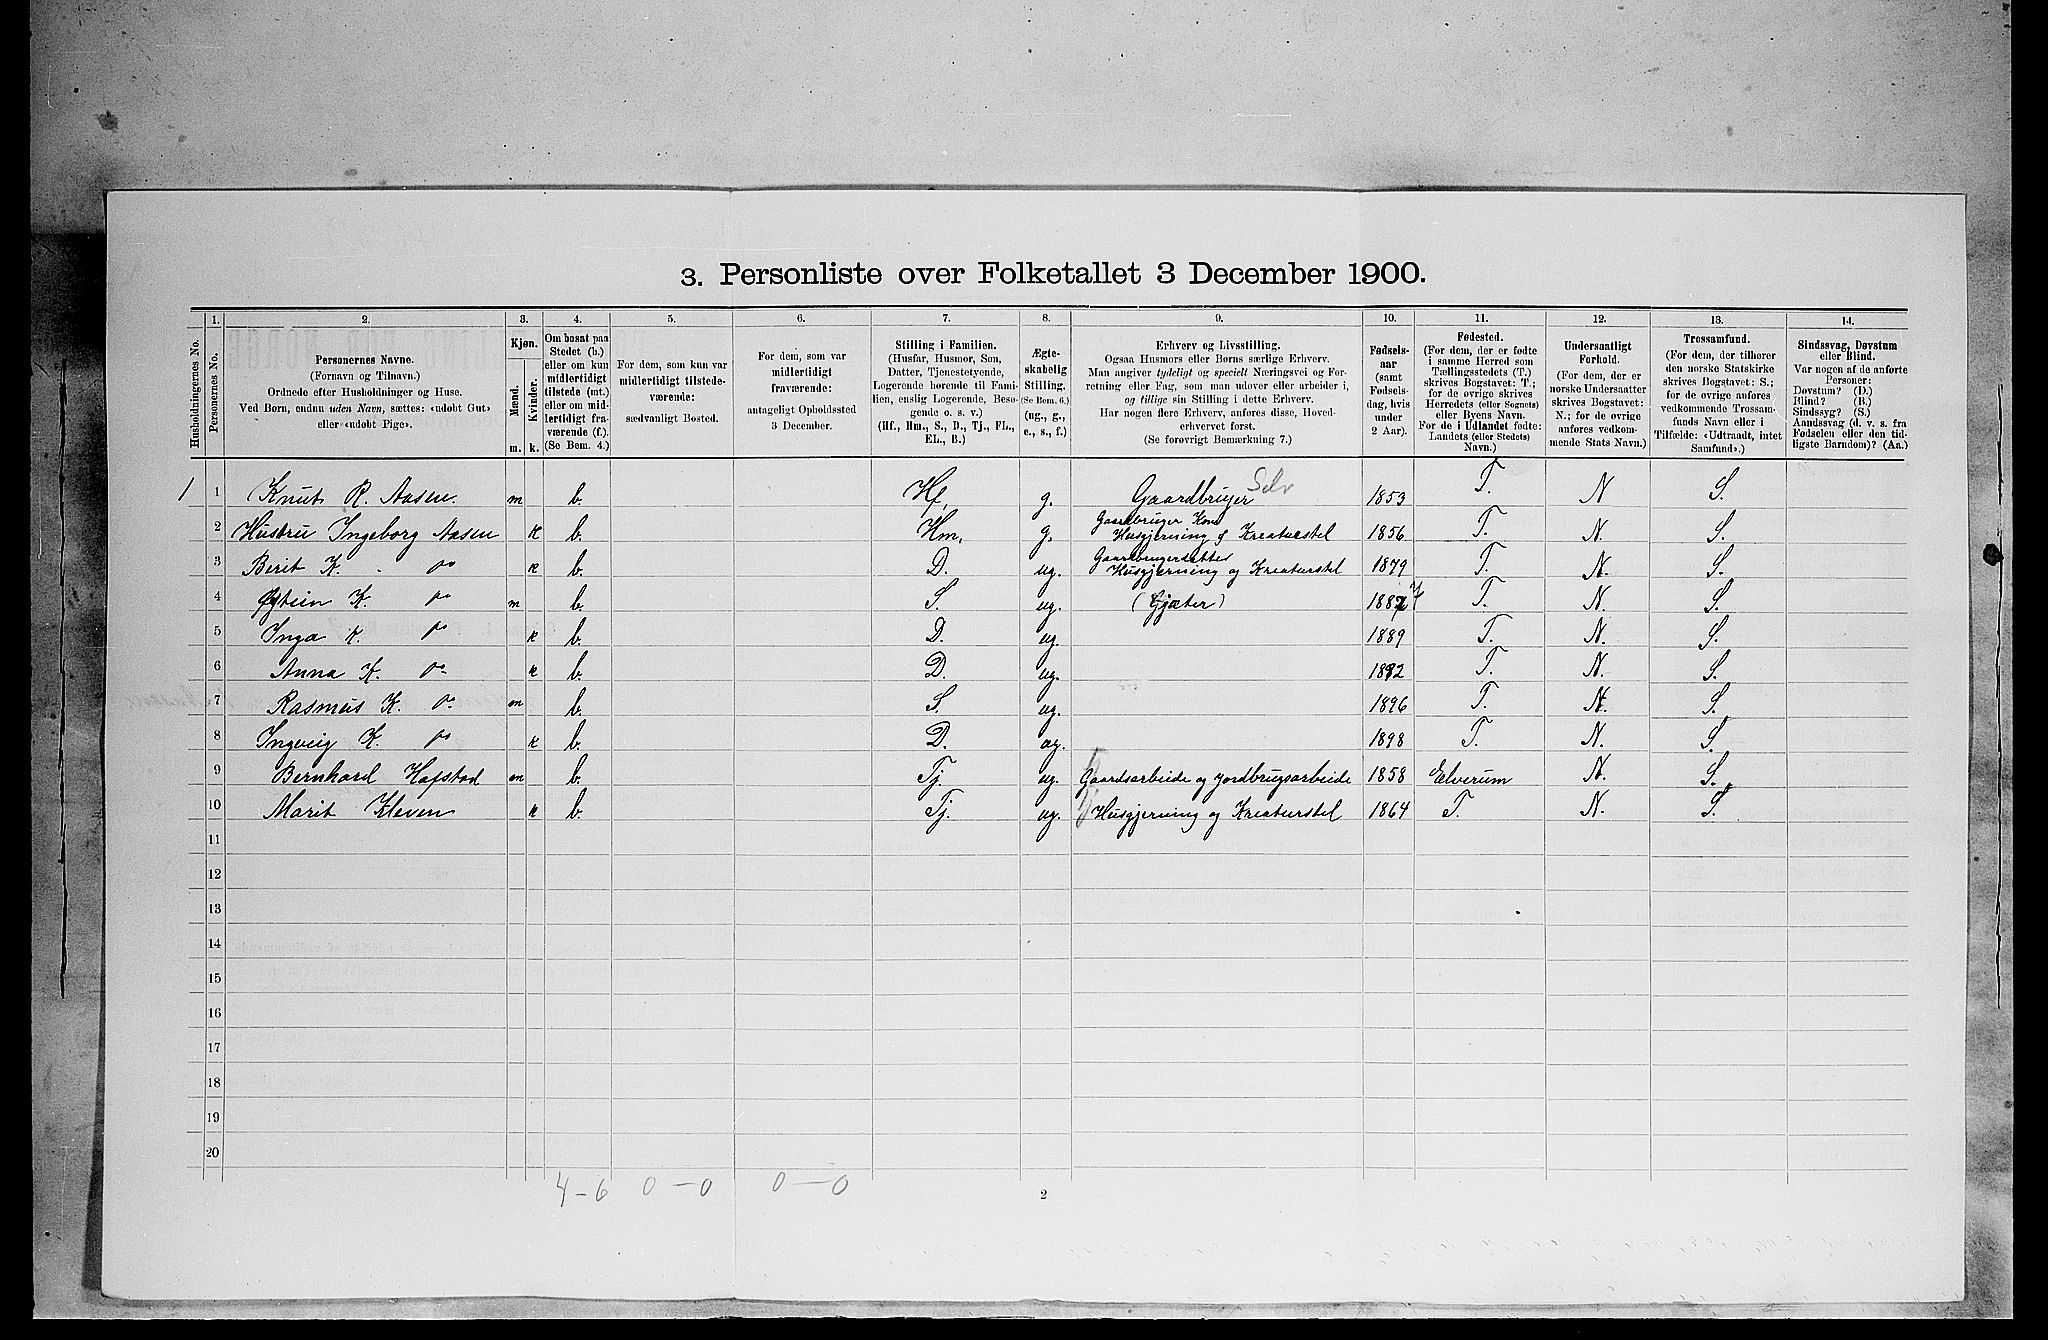 3. Personliste over Folketallet 3 December 1900.
1. 2. 3. 4. 5. 6. 7. 8. 9. 10. 11. 12. 13. 14.
Husholdningernes No.
Personernes No.
Personernes Navne.
(Fornavn og Tilnavn.)
Ordnede efter Husholdninger og Huse.
Ved Børn, endnu uden Navn, sættes: «udøbt Gut»
eller «udøbt Pige».
Kjøn.
Mænd.
Kvinder.
m. k.
Om bosat paa
Stedet (b.)
eller om kun
midlertidigt
tilstede (mt.)
eller om mid-
lertidigt fra-
værende (f.)
(Se Bem. 4.)
For dem, som kun var
midlertidigt tilstede-
værende:
sædvanligt Bosted.
For dem, som var
midlertidigt
fraværende:
antageligt Opholdssted
3 December.
Stilling i Familien.
(Husfar, Husmor, Søn,
Datter, Tjenestetyende,
Logerende hørende til Fami-
lien, enslig Logerende, Besø-
gende o. s. v.)
(Hf., Hm., S., D., Tj., FL.,
EL., B.)
Ægte-
skabelig
Stilling.
(Se Bem. 6.)
(ug., g.,
e., s., f.)
Erhverv og Livsstilling.
Ogsaa Husmors eller Børns særlige Erhverv.
Man angiver tydeligt og specielt Næringsvei og For-
retning eller Fag, som man udover eller arbeider i,
og tillige sin Stilling i dette Erhverv.
Har nogen flere Erhverv, anføres disse, Hoved-
erhvervet først.
(Se forøvrigt Bemærkning 7.)
Fødsels-
aar
(samt
Fødsels-
dag, hvis
under
2 Aar).
Fødested.
(For dem, der er fødte
i samme Herred som
Tællingsstedets (T.)
skrives Bogstavet: T.;
for de øvrige skrives
Herredets (eller Sognets)
eller Byens Navn.
For de i Udlandet fødte:
Landets (eller Stedets)
Navn.)
Undersaatligt
Forhold.
(For dem, der er
norske Undersaatter
skrives Bogstavet:
N.; for de øvrige
anføres vedkom-
mende Stats Navn.)
Trossamfund.
(For dem, der tilhører
den norske Statskirke
skrives Bogstavet: S.;
for de øvrige anføres
vedkommende Trossam-
funds Navn eller i
Tilfælde: «Udtraadt, intet
Samfund».)
Sindssvag, Døvstum
eller Blind.
Var nogen af de anførte
Personer:
Døvstum? (D.)
Blind? (B.)
Sindssyg? (S.)
Aandssvag (d. v. s. fra
Fødselen eller den tid-
ligste Barndom)? (Aa.)
1 1 Knut R. Aasen. m b. Hf. g. Gaardbruger Selv 1853 T. N S.
2 Hustru Ingeborg Aasen k b. Hm. g. Gaardbruger Kone Husgjerning og Kreaturstel 1856 T. N. S.
3 Berit K. do k b. D. ug. Gaardbrugerdatter Husgjerning og Kreaturstel 1879 T. N. S.
4 Øistein K. do m b. S. ug. (Gjæter) 1887 T. N. S.
5 Inga K. do k b. D. ug. 1889 T. N. S.
6 Anna K. do k b. D. ug. 1892 T. N. S.
7 Rasmus K. do m b. S. ug. 1896 T. N. S.
8 Ingveig K. do k b. D. ug. 1898 T. N. S.
9 Bernhard Hafstad m b. Tj. ug. Gaardsarbeide og Jordbrugsarbeide 1858 Elverum N. S.
10 Marit Kleven k b. Tj. ug. Husgjerning og Kreaturstel 1864 T. N. S.
11
12
13
14
15
16
17
18
19
20
4-6 0-0 0-0
2